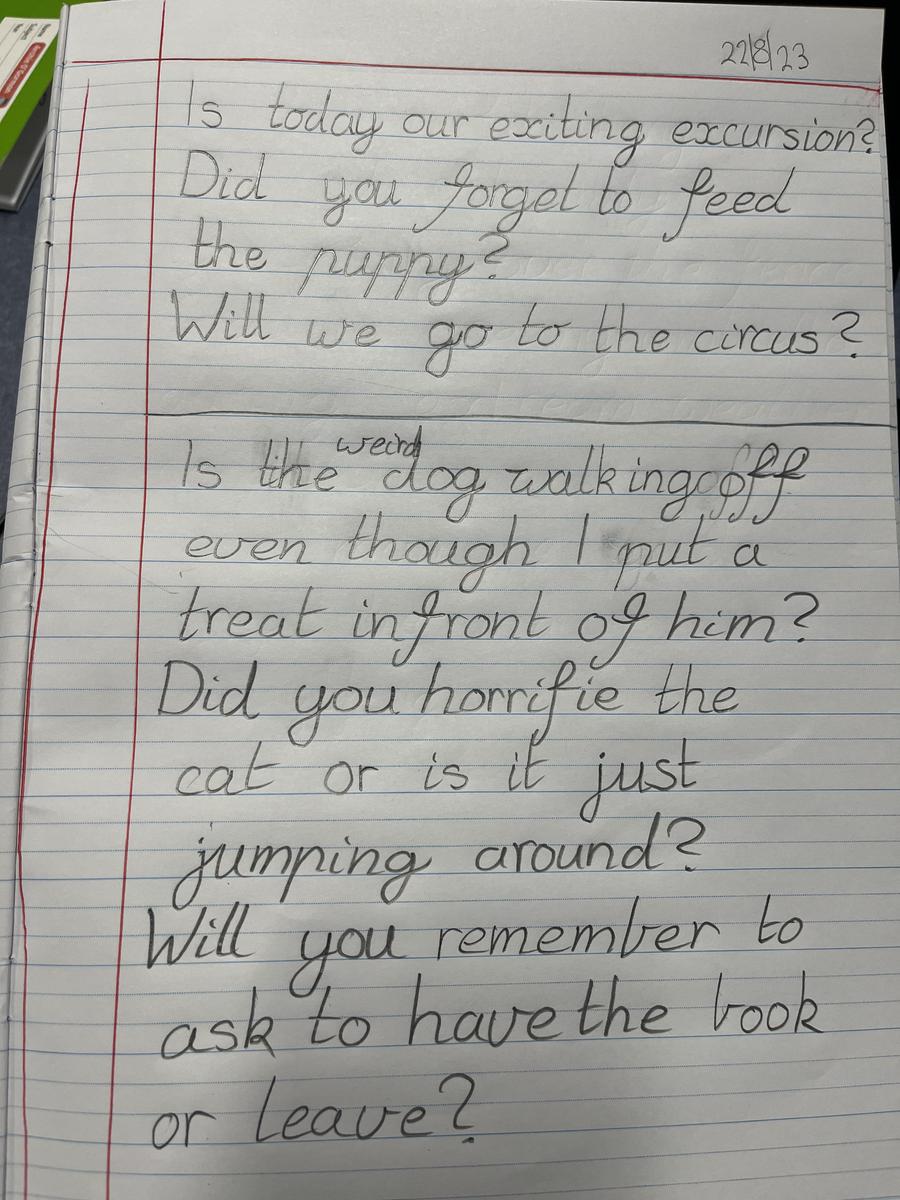 22/8/23
Is today our exiting excursion?
Did you forget to feed
the puppy?
Will we go to the circus?
weird
Is the dog walking off
even though I put a
treat infront of him?
Did you horrifie the
cat or is it just
jumping around?
Will you remember to
ask to have the book
or leave?